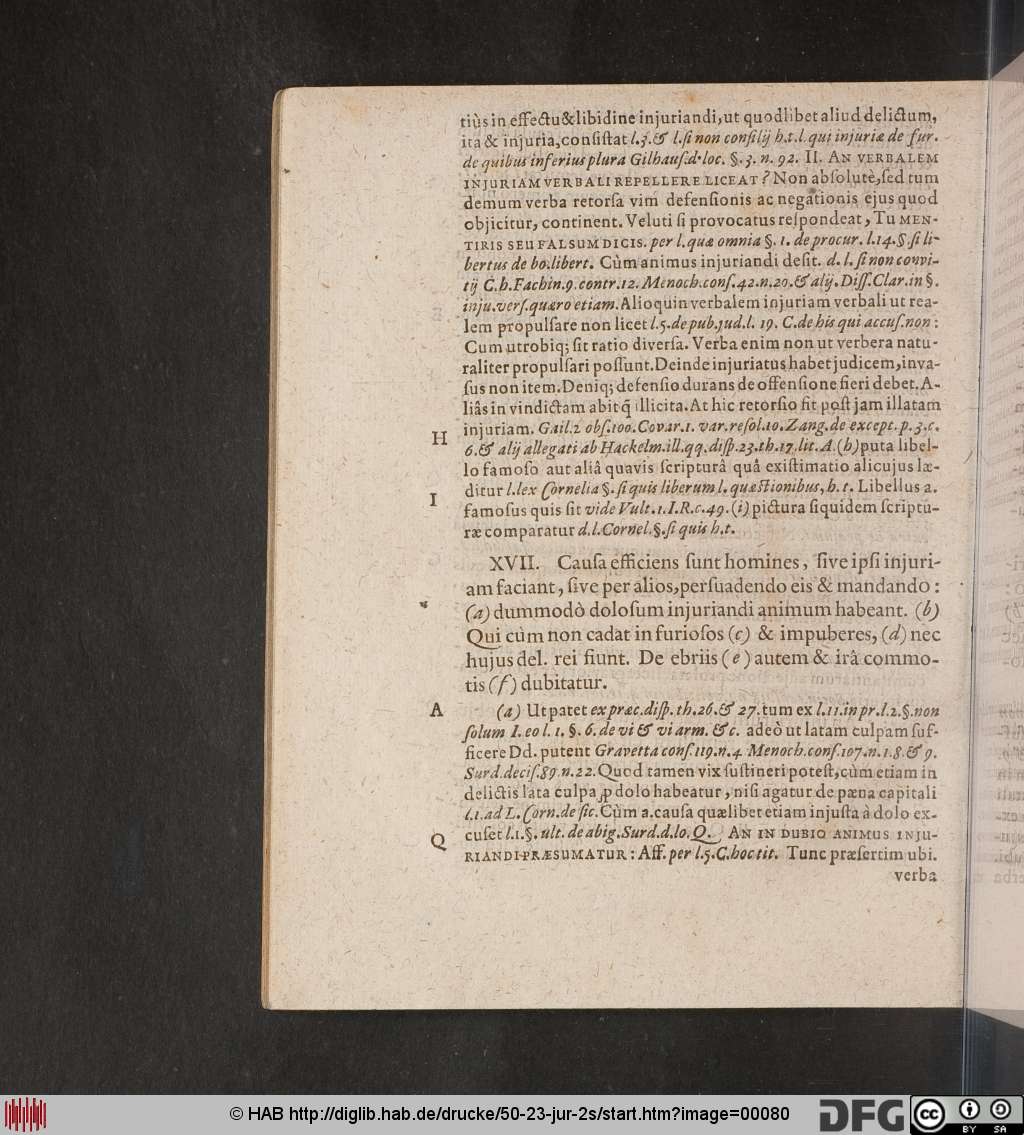 tiùs in effectu & libidine injuriandi, ut quodlibet aliud delictum,
ita & injuria, consistat l. 3. & l. si non consilij h. t. l. qui injuriæ de fur.
de quibus inferius plura Gilhaus. d. loc. §. 3. n. 92. II. AN VERBALEM
INJURIAM VERBALI REPELLERE LICEAT? Non absolutè, sed tum
demum verba retorsa vim defensionis ac negationis ejus quod
objicitur, continent. Veluti si provocatus respondeat, TU MEN-
TIRIS SEU FALSUM DICIS. per l. quæ omnia §. 1. de procur. l. 14. §. si li-
bertus de bo. libert. Cùm animus injuriandi desit. d. l. si non convi-
tij C. h. Fachin. 9. contr. 12. Menoch. cons. 42. n. 20. & alij. Diss. Clar. in §.
inju. vers. quæro etiam. Alioquin verbalem injuriam verbali ut rea-
lem propulsare non licet l. 5. de pub. jud. l. 19. C. de his qui accus. non:
Cum utrobiq; sit ratio diversa. Verba enim non ut verbera natu-
raliter propulsari possunt. Deinde injuriatus habet judicem, inva-
sus non item. Deniq; defensio durans de offensione fieri debet. A-
liâs in vindictam abit q̃ illicita. At hic retorsio fit post jam illatam
injuriam. Gail. 2 obs. 100. Covar. 1. var. resol. 10. Zang. de except. p. 3. c.
H 6. & alij allegati ab Hackelm. ill. qq. disp. 23. th. 17. lit. A. (h) puta libel-
lo famoso aut aliâ quavis scripturâ quâ existimatio alicujus læ-
ditur l. lex Cornelia §. si quis liberum l. quæstionibus, h. t. Libellus a.
I famosus quis sit vide Vult. 1. I. R. c. 49. (i) pictura siquidem scriptu-
ræ comparatur d. l. Cornel. §. si quis h. t.
XVII. Causa efficiens sunt homines, sive ipsi injuri-
am faciant, sive per alios, persuadendo eis & mandando:
(a) dummodò dolosum injuriandi animum habeant. (b)
Qui cùm non cadat in furiosos (c) & impuberes, (d) nec
hujus del. rei fiunt. De ebriis (e) autem & irâ commo-
tis (f) dubitatur.
A (a) Ut patet ex præc. disp. th. 26. & 27. tum ex l. 11. in pr. l. 2. §. non
solum I. eo l. 1. §. 6. de vi & vi arm. &c. adeò ut latam culpam suf-
ficere Dd. putent Gravetta cons. 119. n. 4 Menoch. cons. 107. n. 1. 8. & 9.
Surd. decis. 89. n. 22. Quod tamen vix sustineri potest, cùm etiam in
delictis lata culpa ꝓ dolo habeatur, nisi agatur de pæna capitali
l. 1. ad L. Corn. de sic. Cùm a. causa quælibet etiam injusta à dolo ex-
cuset l. 1. §. ult. de abig. Surd. d. lo. Q. AN IN DUBIO ANIMUS INJU-
Q RIANDI PRÆSUMATUR: Aff. per l. 5. C. hoc tit. Tunc præsertim ubi.
verba
© HAB http://diglib.hab.de/drucke/50-23-jur-2s/start.htm?image=00080
DFG
CC BY SA